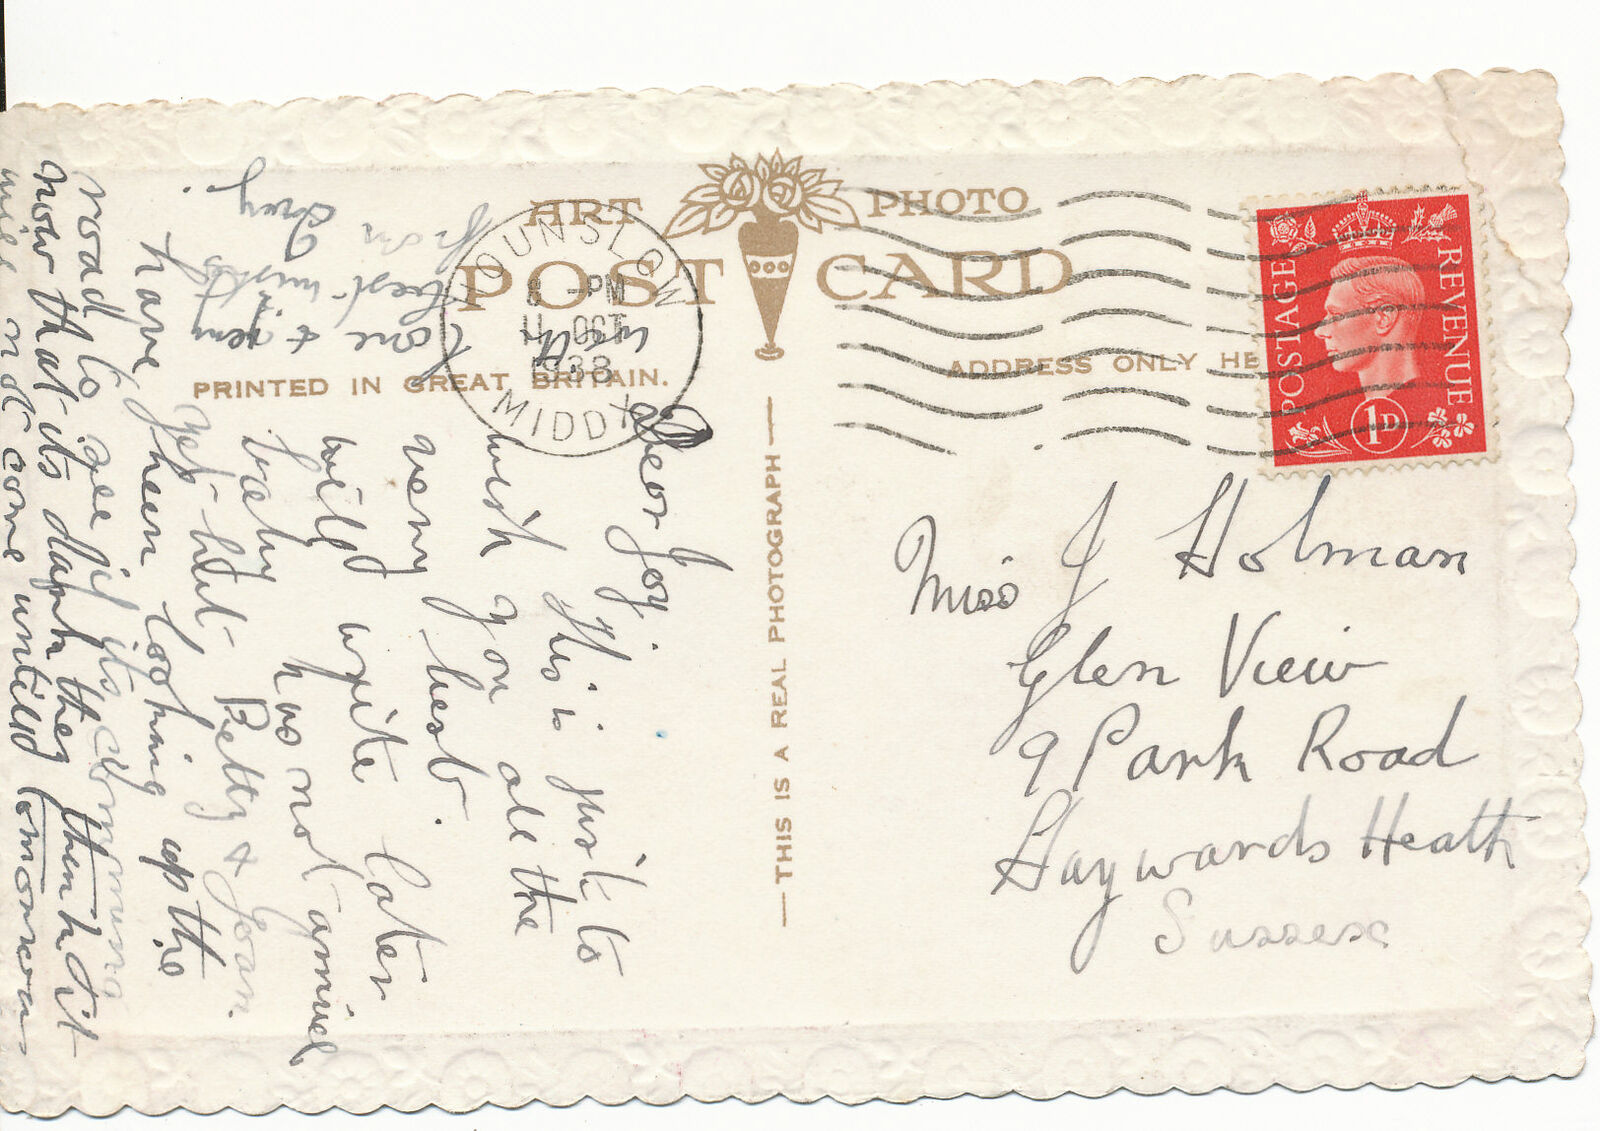 ART PHOTO
POST CARD
PRINTED IN GREAT BRITAIN.
ADDRESS ONLY HE
THIS IS A REAL PHOTOGRAPH
HOUNSLOW
8 - PM
11 OCT
1938
MIDDX
POSTAGE
REVENUE
1D
Miss J Holman
Glen View
9 Park Road
Haywards Heath
Sussex
Dear Joy.
This is just to
wish you all the
very best.
will write later
baby has not arrived
yet but Betty & Joan.
have been looking up the
road to see if its comming
now that its dark they think it
will not come untill tomorrow
with
love & very
best wishes
from